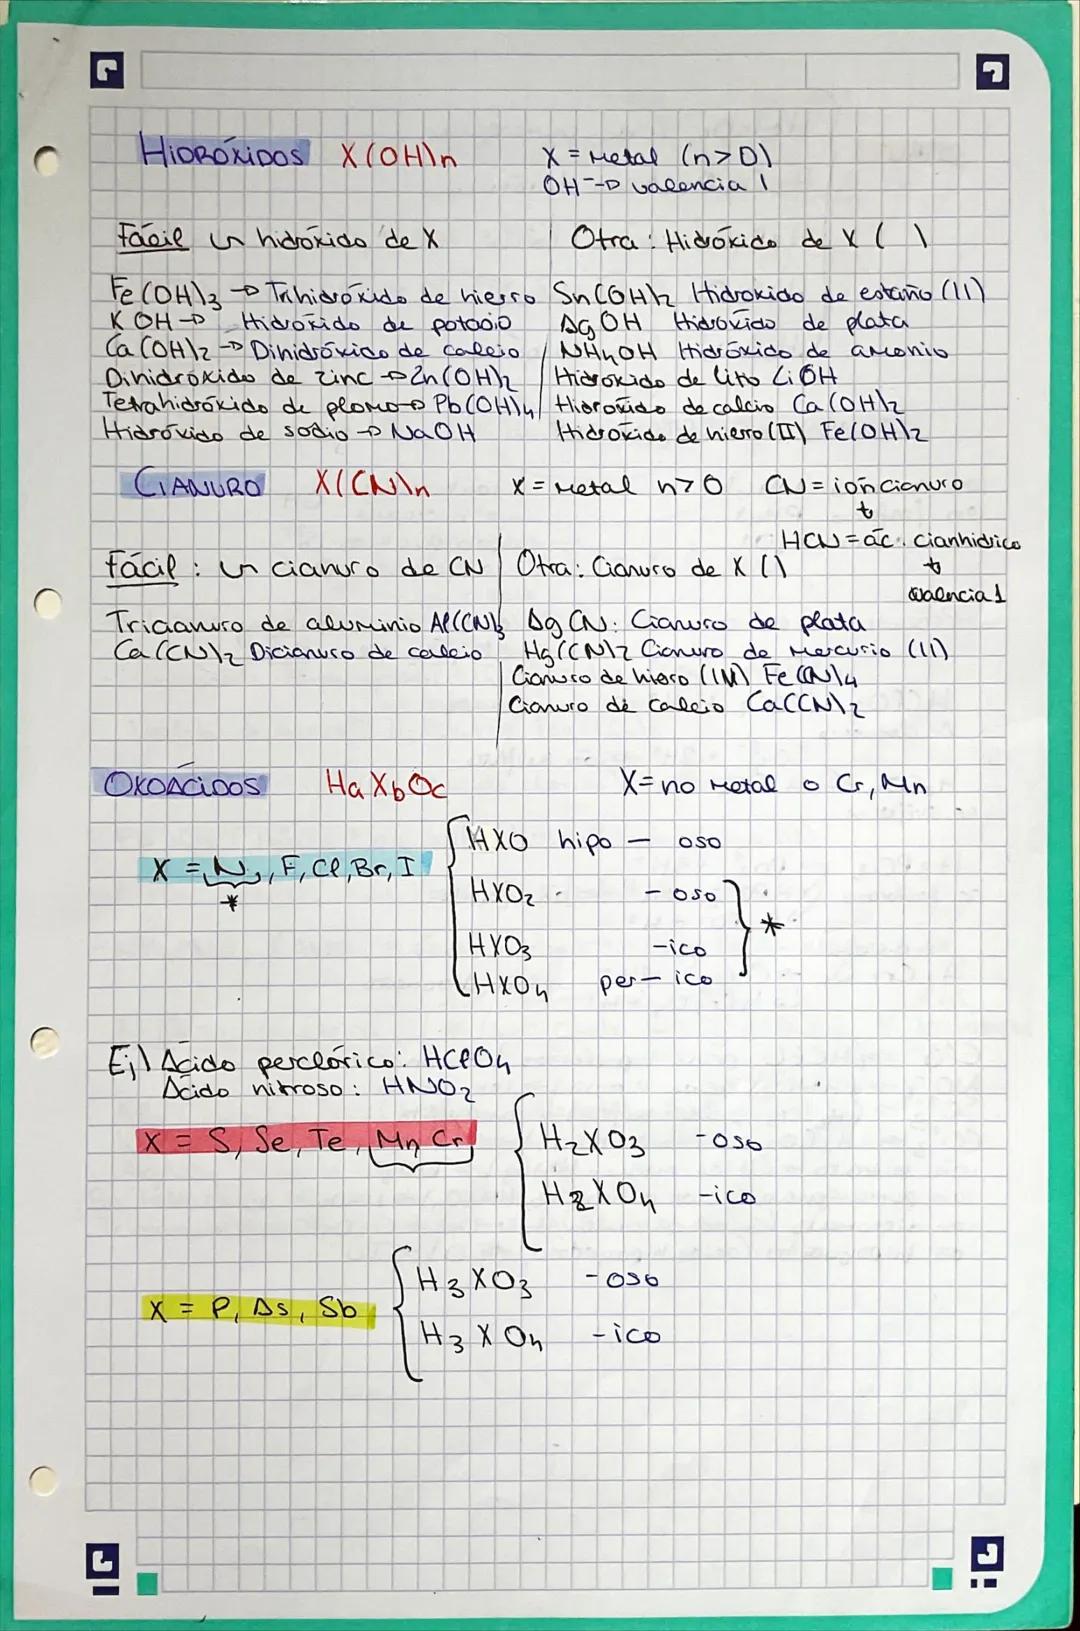 HIDRÓXIDOS X(OH)n X = Metal (n>0)
OH⁻→ valencia 1
Fácil ↳ hidróxido de X Otra: Hidróxido de X ( )
Fe(OH)3 → Trihidróxido de hierro Sn(OH)2 Hidroxido de estaño (II)
KOH → Hidróxido de potasio AgOH Hidróxido de plata
Ca(OH)2 → Dihidróxido de calcio NH4OH Hidróxido de amonio
Dihidroxido de zinc → Zn(OH)2 Hidróxido de litio LiOH
Tetrahidróxido de plomo → Pb(OH)4 Hidroxido de calcio Ca(OH)2
Hidróxido de sodio → NaOH Hidroxido de hierro (II) Fe(OH)2
CIANURO X(CN)n X = Metal n>0 CN = ión cianuro
HCN = ác. cianhídrico
Fácil: ↳ cianuro de CN Otra: Cianuro de X ()
valencia 1
Tricianuro de aluminio Al(CN)3 AgCN: Cianuro de plata
Ca(CN)2 Dicianuro de calcio Hg(CN)2 Cianuro de Mercurio (II)
Cianuro de hierro (IV) Fe(CN)4
Cianuro de calcio Ca(CN)2
OXOÁCIDOS HaXbOc X = no metal o Cr, Mn
HXO hipo — oso
X = N, F, Cl, Br, I
*
HXO2 - oso
*
HXO3 -ico
HXO4 per — ico
Ej) Ácido perclórico: HClO4
Ácido nitroso: HNO2
X = S, Se, Te, Mn Cr H2XO3 -oso
H2XO4 -ico
H3XO3 -oso
X = P, As, Sb
H3XO4 -ico